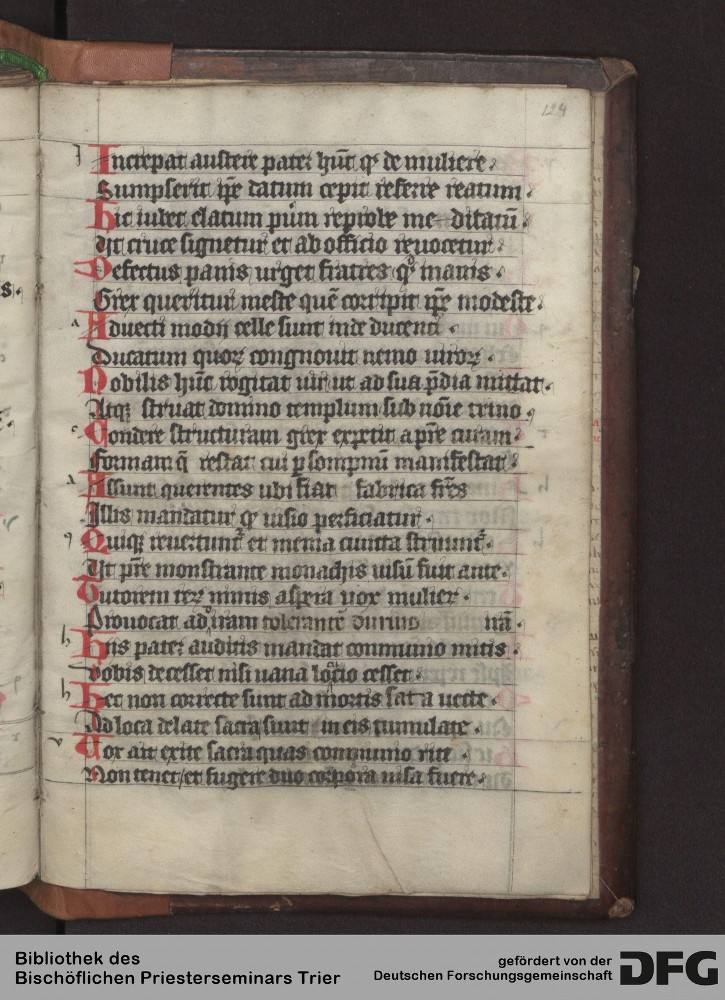 124
Increpat austere pater hūc qꝫ de muliere.
Sumpserit ip̄e datum cepit referre reatum.
Hic iubet elatum puīm reprobe me ditatū.
Ut cruce signetur et ab officio reuocetur.
Defectus panis urget fratres qͦꝫ manis.
Grex queritur meste quē corripit ip̄e modeste.
Aduecti modij celle sunt inde ducenti.
Ducatum quoꝝ congnouit nemo uiroꝝ.
Nobilis hūc rogitat uir ut ad sua p̄dia mittat.
Atqꝫ struat domino templum sub noīe trino.
Condere structuram grex expetit a pr̄e curam.
Formam q̄ restat cui ꝑ sompnū manifestat.
Assunt querentes ubi fiat fabrica fr̄es
Illis mandatur qꝫ uisio perficiatur.
Quiqꝫ reuertunt᷑ et menia cuncta struunt᷑.
Ut pr̄e monstrante monachis uisū fuit ante.
Tutorem teꝝ nimis aspera uox mulier.
Prouocat ad iram tolerantē nā.
Hijs pater auditis mandat communio mitis.
Vobis decesset nisi uana loq̄cio cesset.
Hec non correcte sunt ad mortis fata uecte.
Ad loca delate sacra sunt in eis tumulate.
Uox ait exite sacra quas communio rite.
Non tenet et fugere duo corpora uisa fuere.
Bibliothek des
Bischöflichen Priesterseminars Trier
gefördert von der
Deutschen Forschungsgemeinschaft
DFG